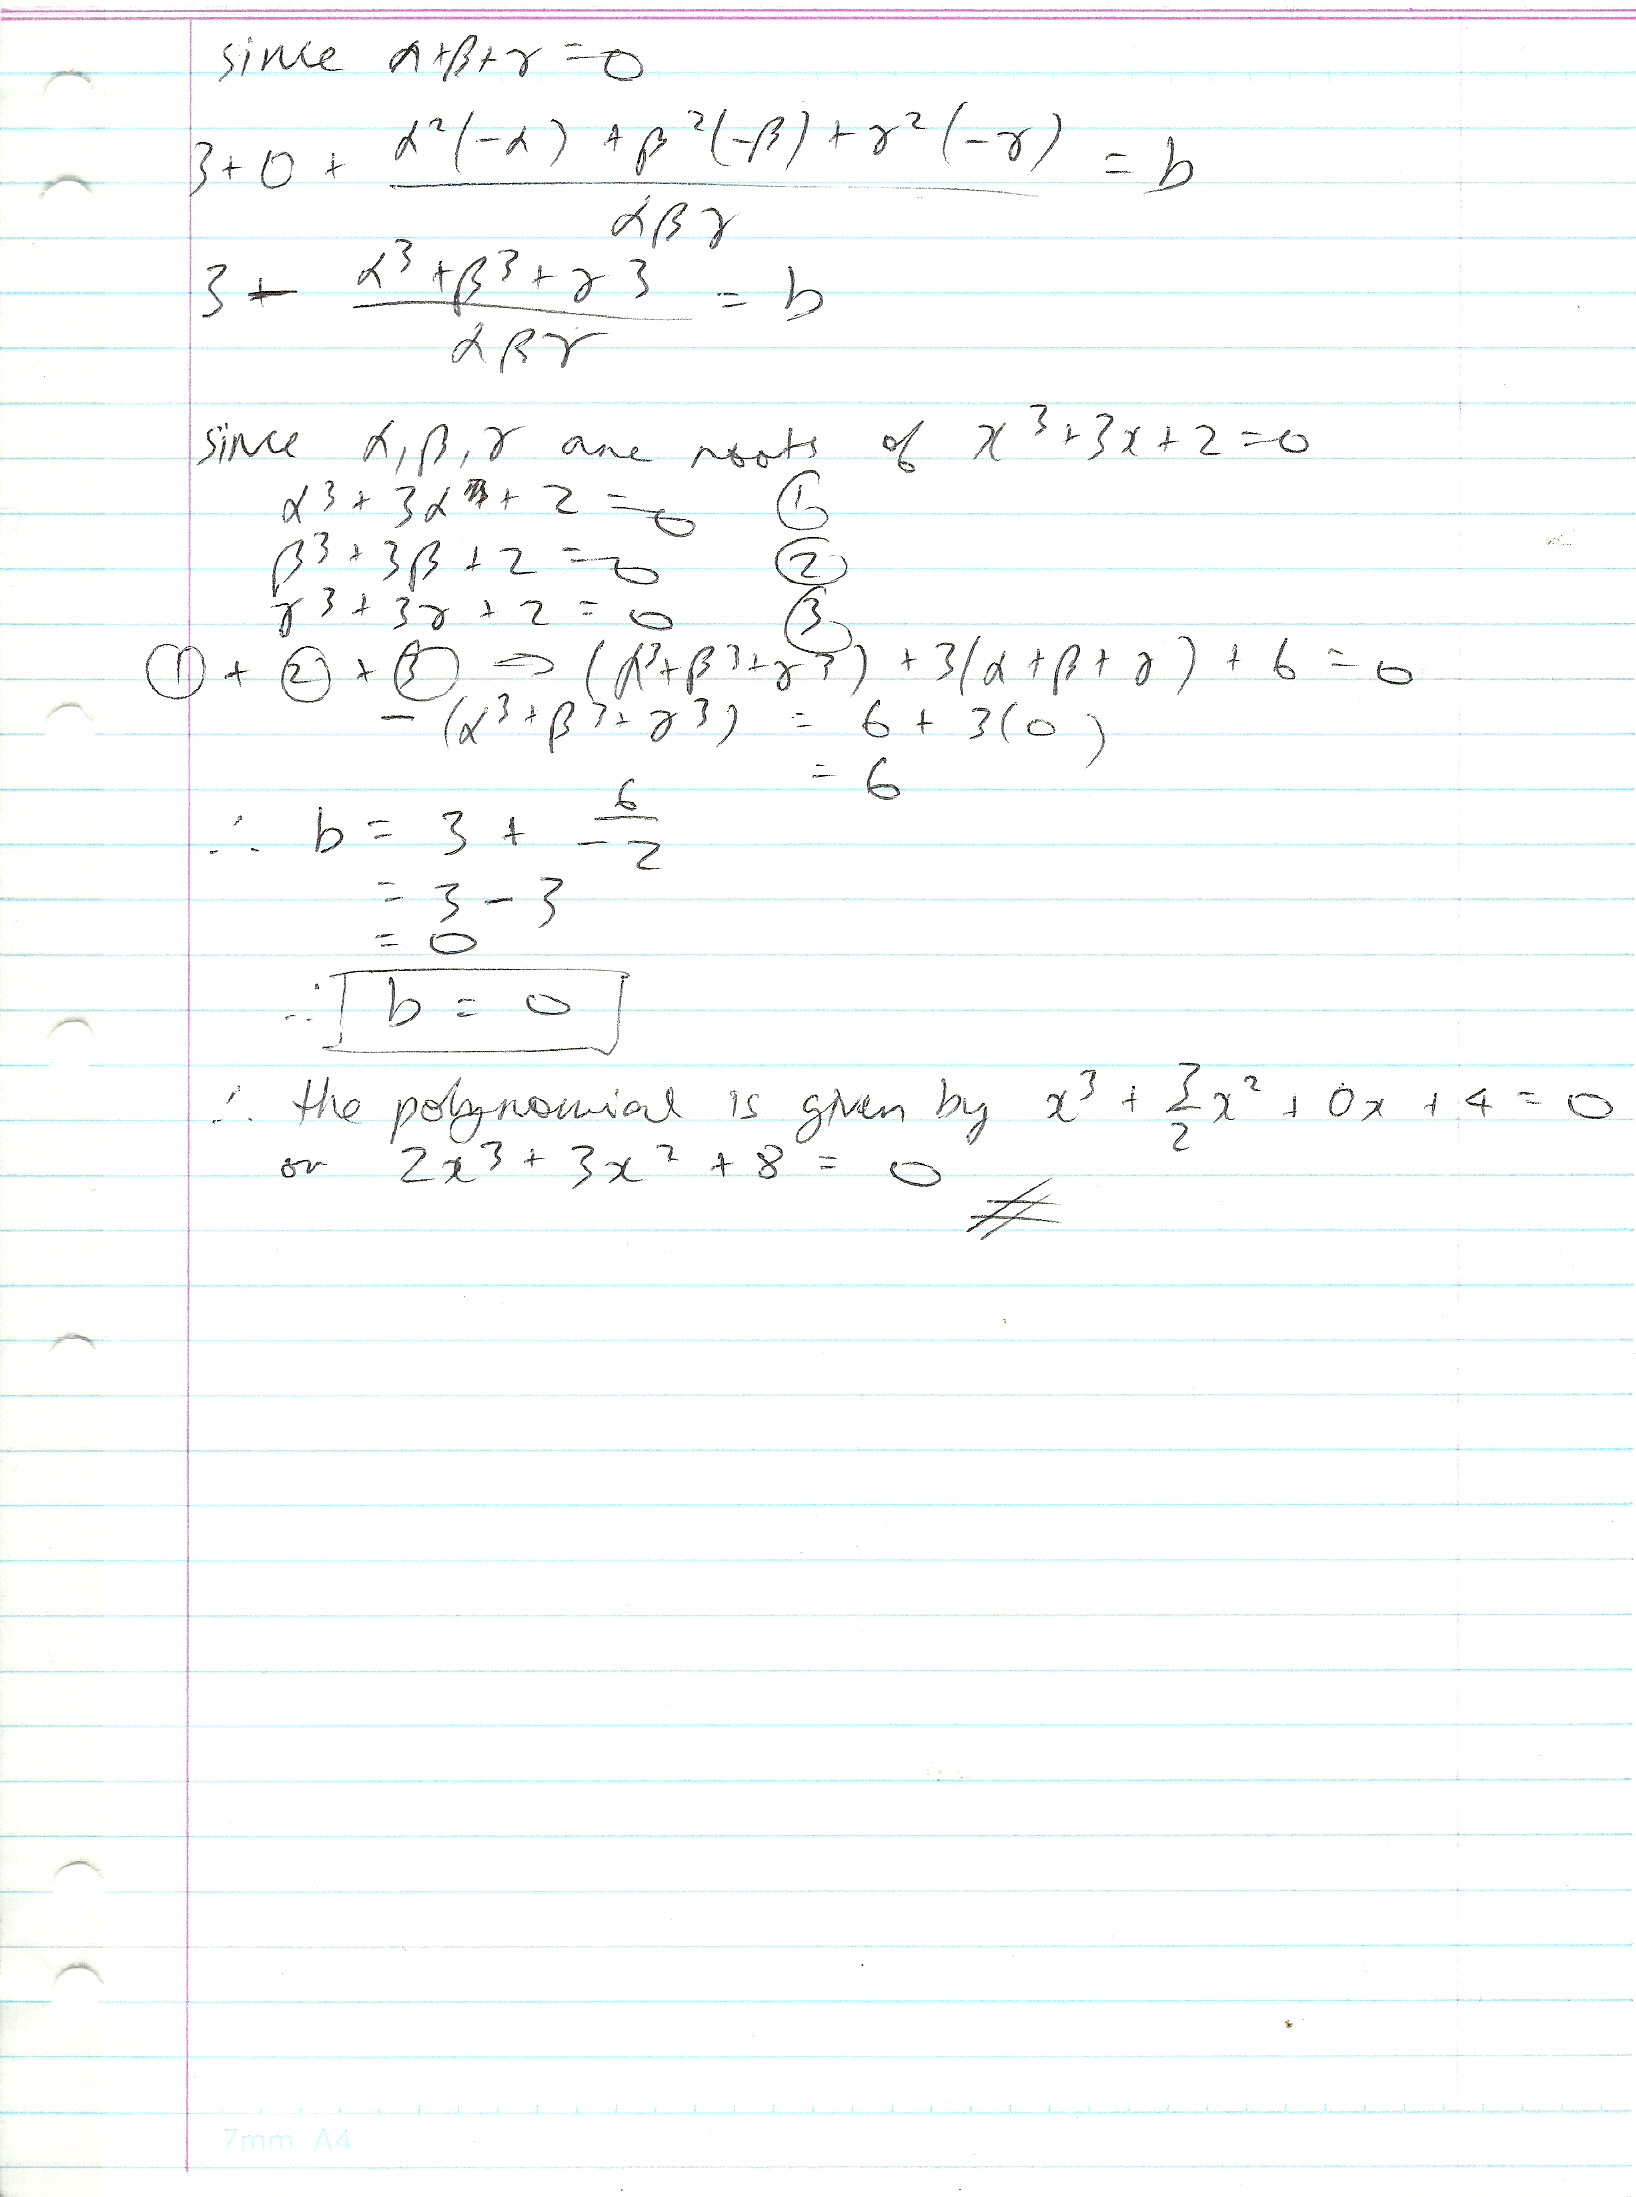 since α+β+γ=0
3+0+ α²(-α) + β²(-β) + γ²(-γ) / αβγ = b
3 - α³+β³+γ3 / αβγ = b
since α,β,γ are roots of x³+3x+2=0
α³+3α+2=0 ①
β³+3β+2=0 ②
γ³+3γ+2=0 ③
①+②+③ ⇒ (α³+β³+γ³)+3(α+β+γ)+6=0
-(α³+β³+γ³) = 6+3(0)
= 6
∴ b = 3 + 6/-2
= 3-3
= 0
∴ b = 0
∴ the polynomial is given by x³+3/2x²+0x+4=0
or 2x³+3x²+8=0
7mm A4